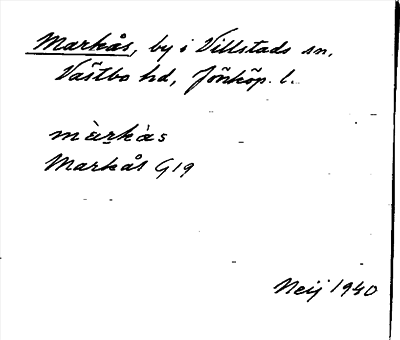 Markås, by i Villstads sn,
Västbo hd, Jönköp. l.
màrkàs
Markås G19
Neij 1940